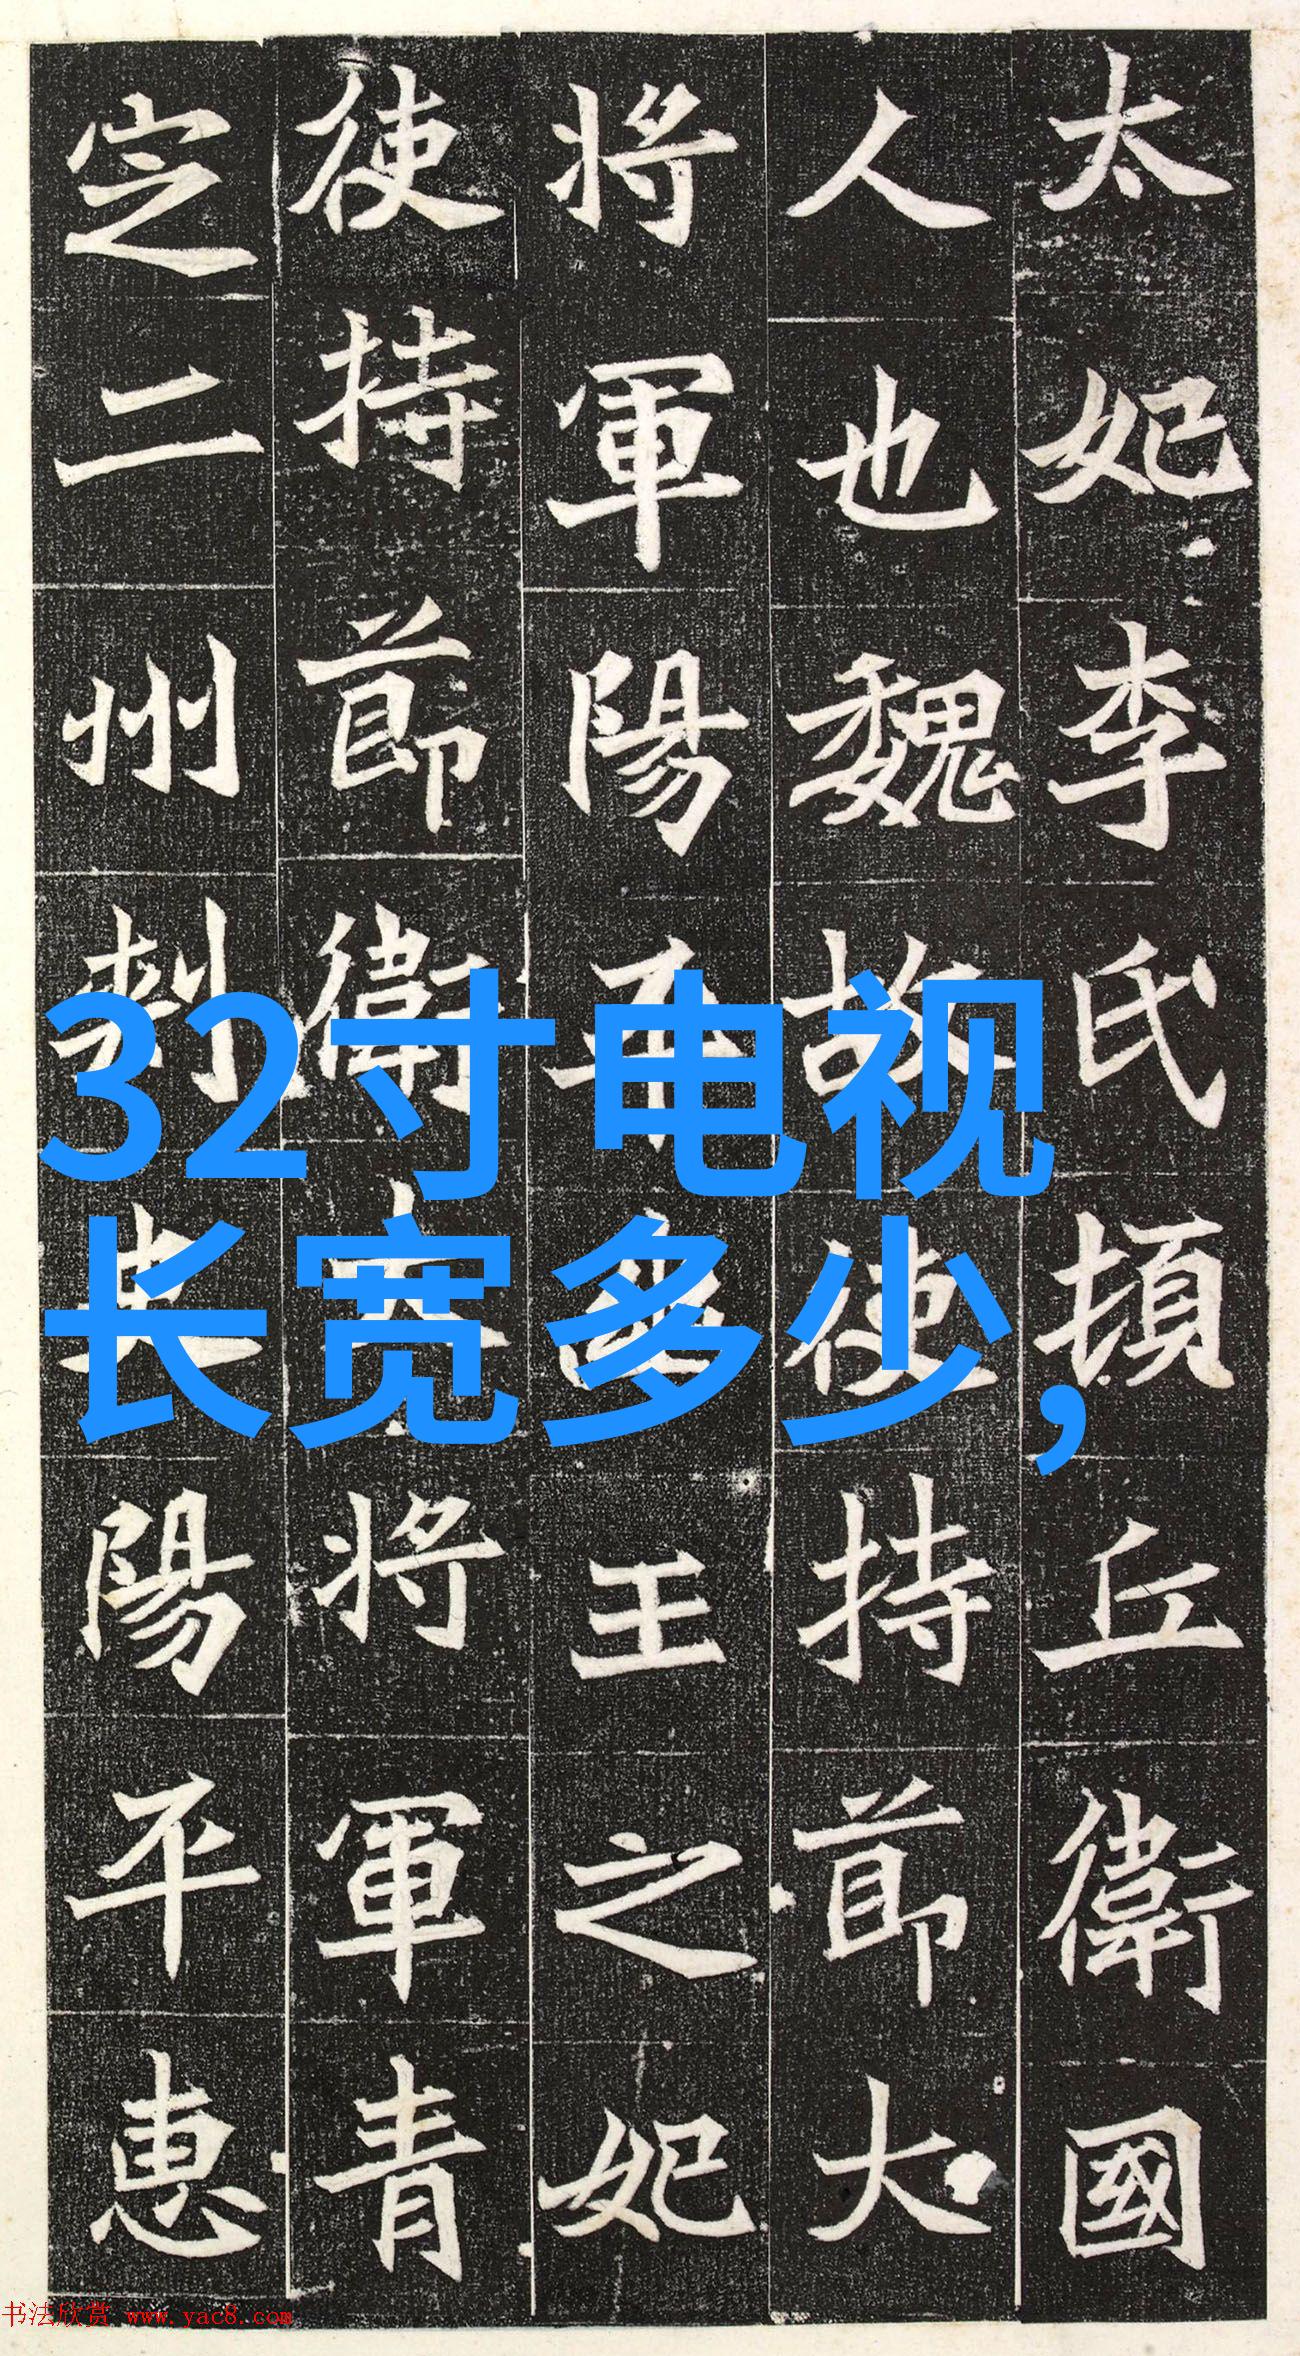 太妃李氏頓丘衛國
人也魏故使持節大
將軍陽平幽王之妃
使持節衛大將軍青
定二州刺史陽平惠
32寸电视
长宽多少,
书法欣赏 www.yac8.com